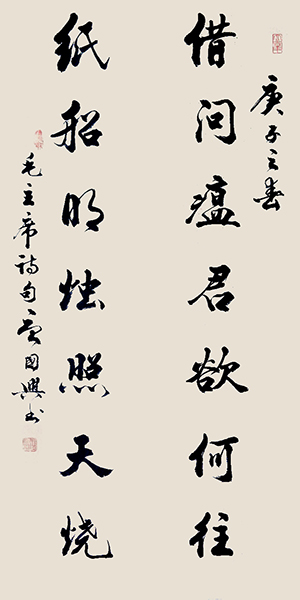 庚子之春
借问瘟君欲何往
纸船明烛照天烧
毛主席诗句 国興书